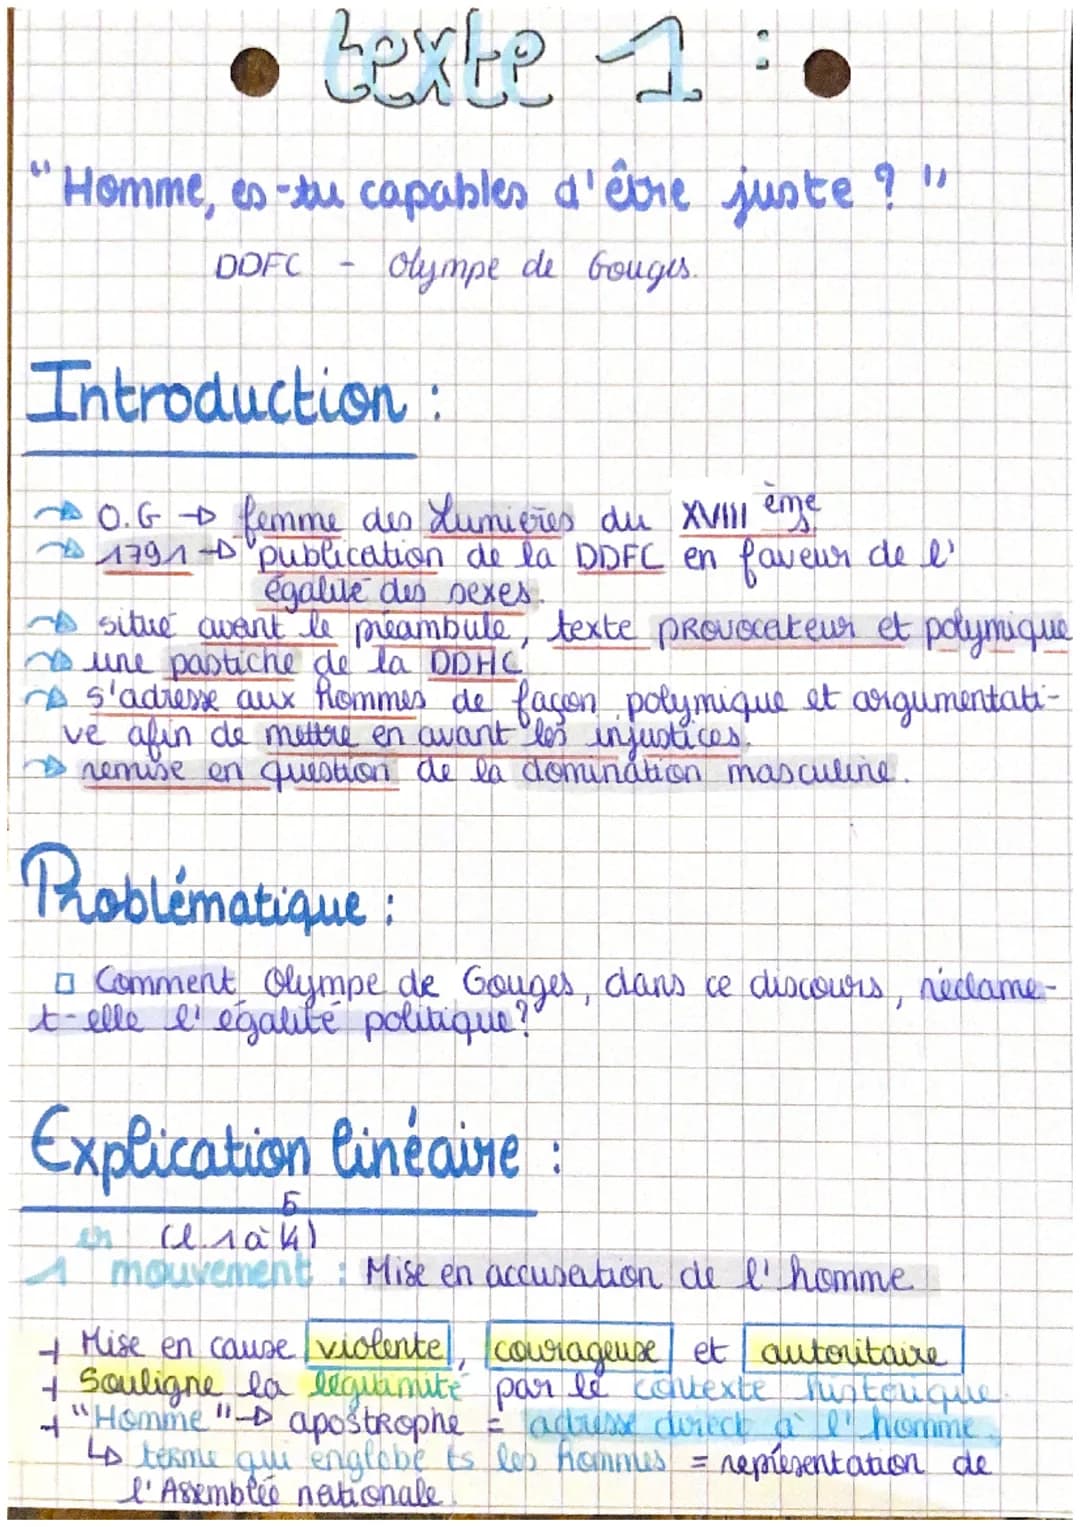 texte 1 :
"Homme, es-tu capables d'être juste ? "
DDFC - Olympe de Gouges.
Introduction :
O.G → femme des Lumières du XVIII ème
1791 → publication de la DDFC en faveur de l'
égalité des sexes.
situé avant le préambule, texte provocateur et polymique
une pastiche de la DDHC
s'adresse aux hommes de façon polymique et argumentati-
ve afin de mettre en avant les injustices.
remise en question de la domination masculine.
Problématique :
Comment Olympe de Gouges, dans ce discours, réclame-
t-elle l'égalité politique?
Explication linéaire :
5
(l.1 à 4)
1 er mouvement : Mise en accusation de l'homme
+ Mise en cause violente, courageuse et autoritaire
+ Souligne la léguamité par le contexte historique.
+ "Homme" → apostrophe = adresse direct à l'homme.
↳ terme qui englobe ts les hommes = représentation de
l'Assemblée nationale.